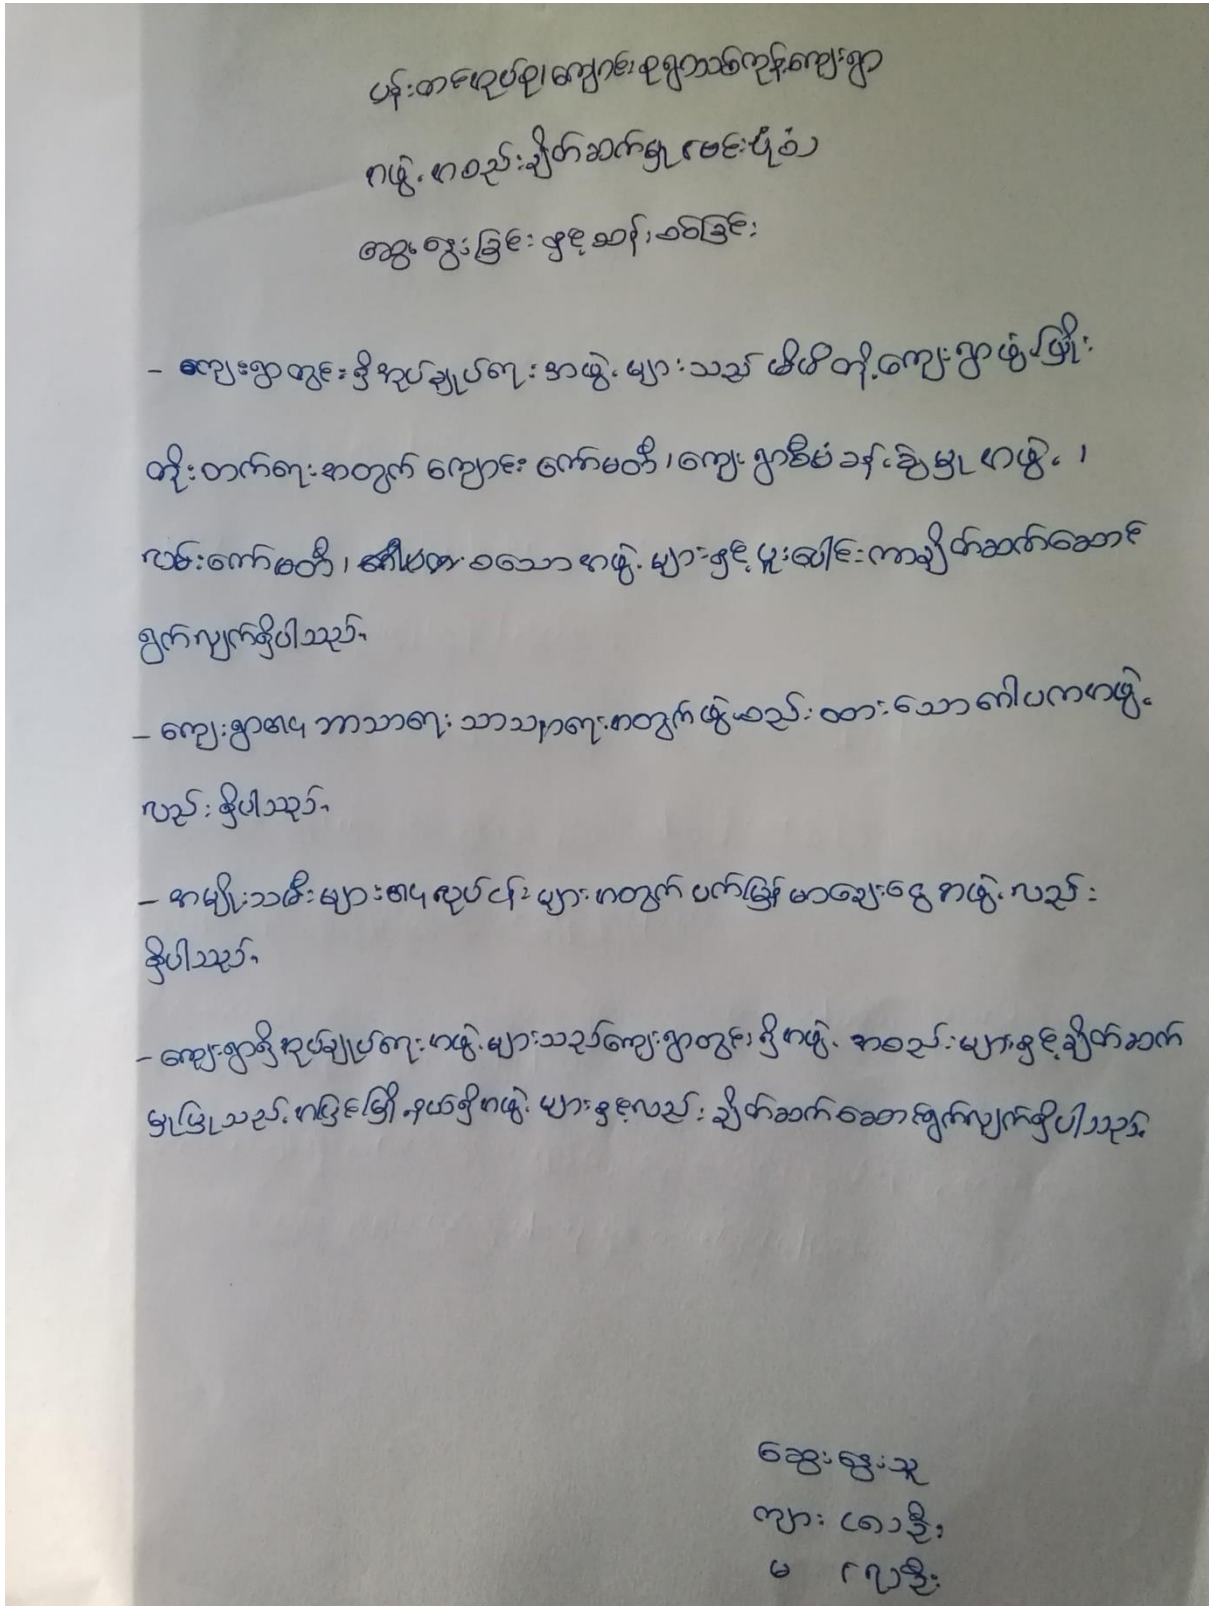 ပန်းတင်အုပ်စု၊ ကျောင်းစု ကုန်းကျေးရွာ
အဖွဲ့အစည်းချိတ်ဆက်မှု (မေးပုံစံ)
ဆွေးနွေးခြင်း နှင့် ဆန်းစစ်ခြင်း
- ကျေးရွာတွင်းရှိ အုပ်ချုပ်ရေးအဖွဲ့များသည် မိမိတို့ကျေးရွာဖွံ့ဖြိုး
တိုးတက်ရေးအတွက် ကျောင်းကော်မတီ၊ ကျေးရွာစီမံခန့်ခွဲမှုအဖွဲ့၊
လမ်းကော်မတီ၊ စသောအဖွဲ့များနှင့် ပူးပေါင်းကာချိတ်ဆက်ဆောင်
ရွက်လျက်ရှိပါသည်။
- ကျေးရွာ၏ ဘာသာရေး သာသနာရေးအတွက် ဖွဲ့စည်းထားသော ဂေါပကအဖွဲ့
လည်းရှိပါသည်။
- အမျိုးသမီးများ၏ လုပ်ငန်းများအတွက် ပက်မြန်မာချေးငွေအဖွဲ့လည်း
ရှိပါသည်။
- ကျေးရွာရှိအုပ်ချုပ်ရေးအဖွဲ့များသည်ကျေးရွာတွင်းရှိအဖွဲ့အစည်းများနှင့်ချိတ်ဆက်
မှုပြုသည့်အပြင်မြို့နယ်ရှိအဖွဲ့များနှင့်လည်းချိတ်ဆက်ဆောင်ရွက်လျက်ရှိပါသည်။
ဆွေးနွေးသူ
ကျား (၈)ဦး
မ (၇)ဦး